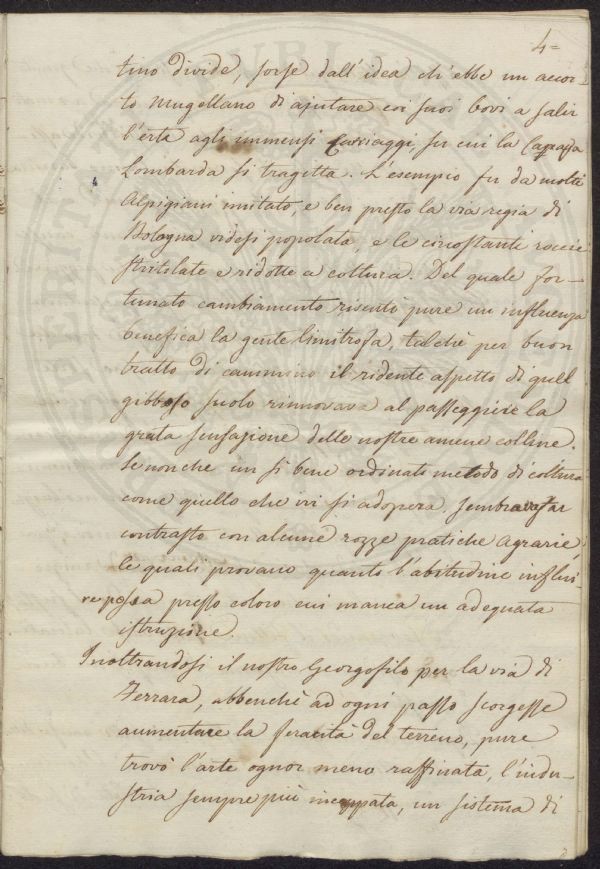 4=
tino divide, forse dall'idea ch'ebbe un accor-
to Mugellano di ajutare coi suoi bovi a salir
l'erta agli immensi Carriaggi, su cui la
Lombarda si tragetta. L'esempio fu da molti
Alpigiani imitato, e ben presto la via regia di
Bologna videsi popolata, e le circostanti roccie
stritolate e ridotte a coltura. Del quale for-
tunato cambiamento risentì pure un influenza
benefica la gente limitrofa, talchè per buon
tratto di cammino il ridente aspetto di quel
gibboso suolo rinnovava al passeggiere la
grata sensazione delle nostre amene colline.
Se non che un sì bene ordinato metodo di coltura
come quello che ivi si adopera, sembrava far
contrasto con alcune rozze pratiche Agrarie,
le quali provano quanto l'abitudine influi-
re possa presso coloro cui manca un adeguata
istruzione.
Inoltrandosi il nostro Georgofilo per la via di
Ferrara, abbenchè ad ogni passo scorgesse
aumentare la feracità del terreno, pure
trovò l'arte ognor meno raffinata, l'indu-
stria sempre più inceppata, un sistema di